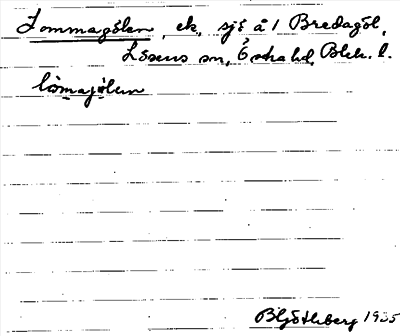 Lommagölen, ek, sjö å 1 Bredagöl,
Lösens sn, Östra hd, Blek. l.
lömajölen
B Hjöthberg 1935